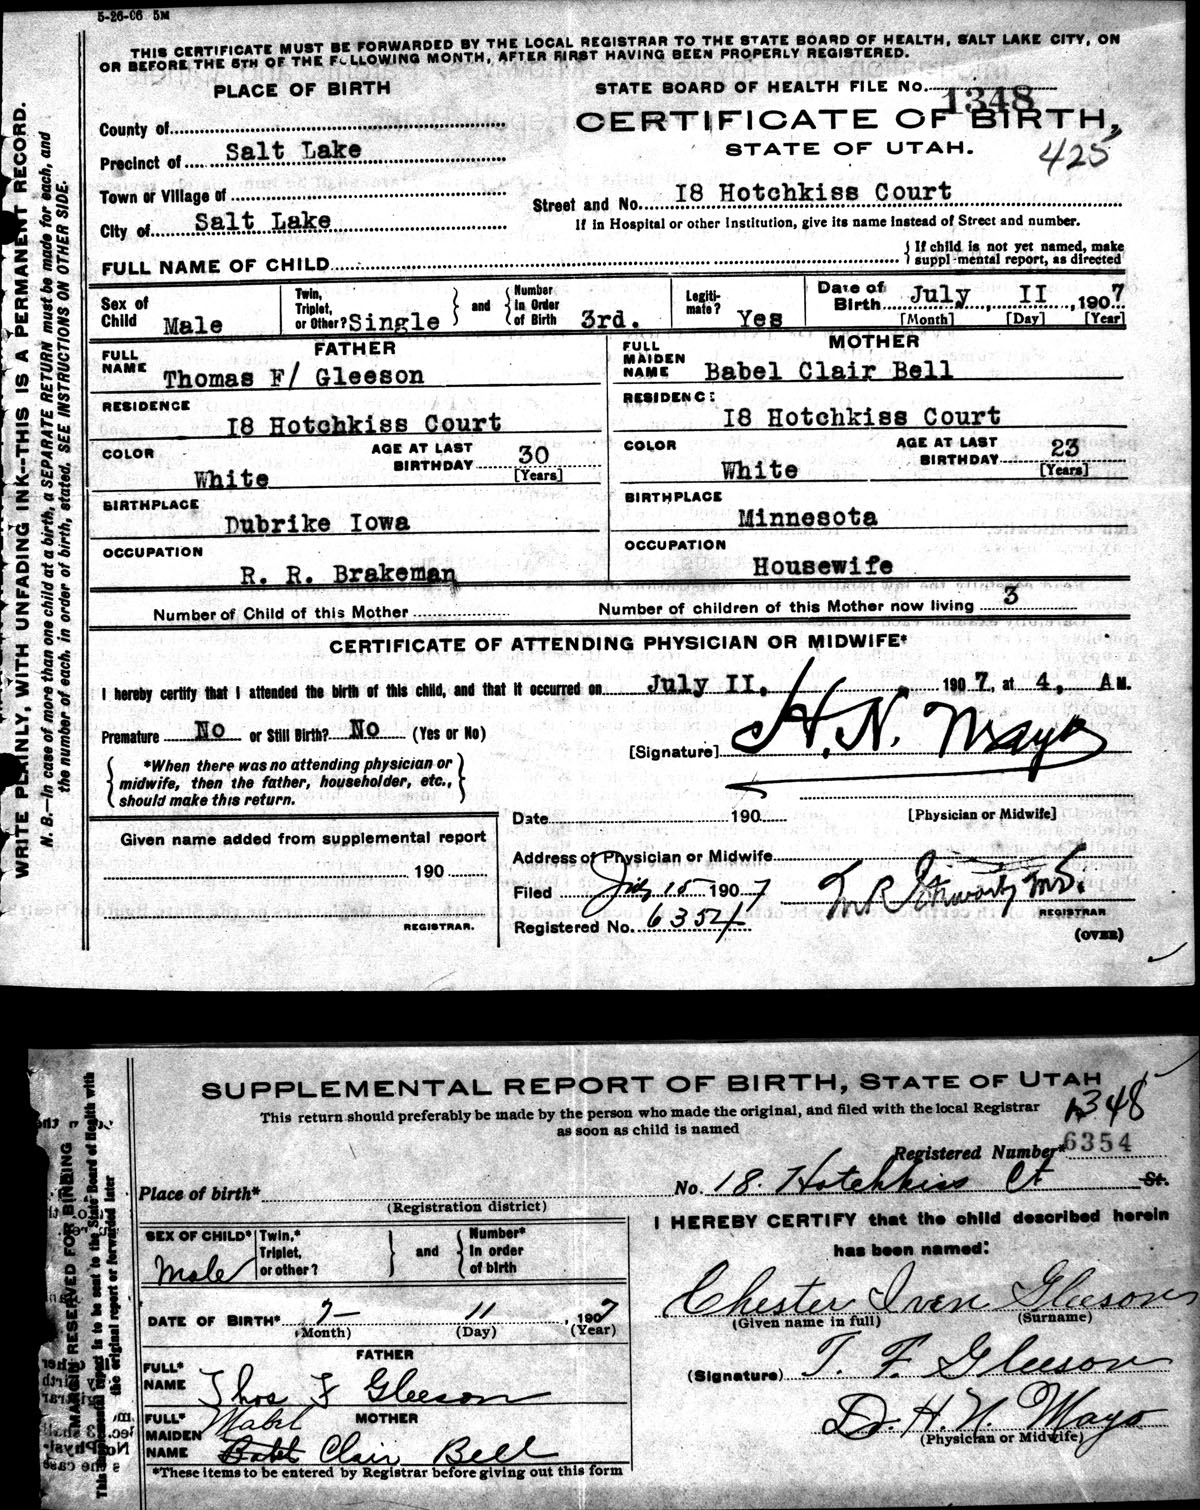 5-26-06 5M
THIS CERTIFICATE MUST BE FORWARDED BY THE LOCAL REGISTRAR TO THE STATE BOARD OF HEALTH, SALT LAKE CITY, ON
OR BEFORE THE 5TH OF THE FOLLOWING MONTH, AFTER FIRST HAVING BEEN PROPERLY REGISTERED.
PLACE OF BIRTH
STATE BOARD OF HEALTH FILE No. 1348
CERTIFICATE OF BIRTH,
STATE OF UTAH.
425
County of
Precinct of Salt Lake
Town or Village of
City of Salt Lake
Street and No. I8 Hotchkiss Court
If in Hospital or other Institution, give its name instead of Street and number.
FULL NAME OF CHILD
{ If child is not yet named, make
suppl-mental report, as directed
Sex of Child Male
Twin, Triplet, or Other? Single } and { Number in Order of Birth 3rd.
Legiti-mate? Yes
Date of Birth July II, 1907
[Month] [Day] [Year]
FATHER
FULL NAME Thomas F/ Gleeson
RESIDENCE I8 Hotchkiss Court
COLOR White
AGE AT LAST BIRTHDAY 30 [Years]
BIRTHPLACE Dubrike Iowa
OCCUPATION R. R. Brakeman
MOTHER
FULL MAIDEN NAME Babel Clair Bell
RESIDENC: I8 Hotchkiss Court
COLOR White
AGE AT LAST BIRTHDAY 23 [Years]
BIRTHPLACE Minnesota
OCCUPATION Housewife
Number of Child of this Mother
Number of children of this Mother now living 3
CERTIFICATE OF ATTENDING PHYSICIAN OR MIDWIFE*
I hereby certify that I attended the birth of this child, and that it occurred on July II, 1907, at 4, A M.
Premature No or Still Birth? No (Yes or No)
[Signature] H. N. Mayo
{ *When there was no attending physician or
midwife, then the father, householder, etc.,
should make this return. }
Date 190
[Physician or Midwife]
Given name added from supplemental report
190
REGISTRAR.
Address of Physician or Midwife
Filed July 15 1907
REGISTRAR
Registered No. 6354
(OVER)
WRITE PLAINLY, WITH UNFADING INK--THIS IS A PERMANENT RECORD.
N. B.--In case of more than one child at a birth, a SEPARATE RETURN must be made for each, and
the number of each, in order of birth, stated. SEE INSTRUCTIONS ON OTHER SIDE.
SUPPLEMENTAL REPORT OF BIRTH, STATE OF UTAH
This return should preferably be made by the person who made the original, and filed with the local Registrar
as soon as child is named
1348
Registered Number* 6354
Place of birth*
(Registration district)
No. 18. Hotchkiss Ct St.
SEX OF CHILD* Male
Twin,* Triplet, or other? } and { Number* in order of birth
DATE OF BIRTH* 7- 11, 1907
(Month) (Day) (Year)
FATHER
FULL* NAME Thos F Gleeson
MOTHER
FULL* MAIDEN NAME Mabel Clair Bell
*These items to be entered by Registrar before giving out this form
I HEREBY CERTIFY that the child described herein
has been named:
Chester Iven Gleeson
(Given name in full) (Surname)
(Signature) T. F. Gleeson
Dr. H. N. Mayo
(Physician or Midwife)
MARGIN RESERVED FOR BINDING
This supplemental report to be sent to the State Board of Health with
the original report or forwarded later